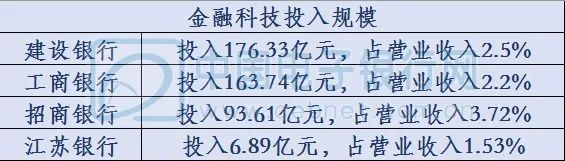 金融科技投入规模
建设银行 投入176.33亿元，占营业收入2.5%
工商银行 投入163.74亿元，占营业收入2.2%
招商银行 投入93.61亿元，占营业收入3.72%
江苏银行 投入6.89亿元，占营业收入1.53%
中国电子银行网